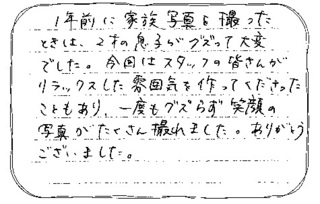 1年前に家族写真を撮った
ときは、2才の息子がグズって大変
でした。今回はスタッフの皆さんが
リラックスした雰囲気を作ってくださった
こともあり、一度もグズらず笑顔の
写真がたくさん撮れました。ありがとう
ございました。